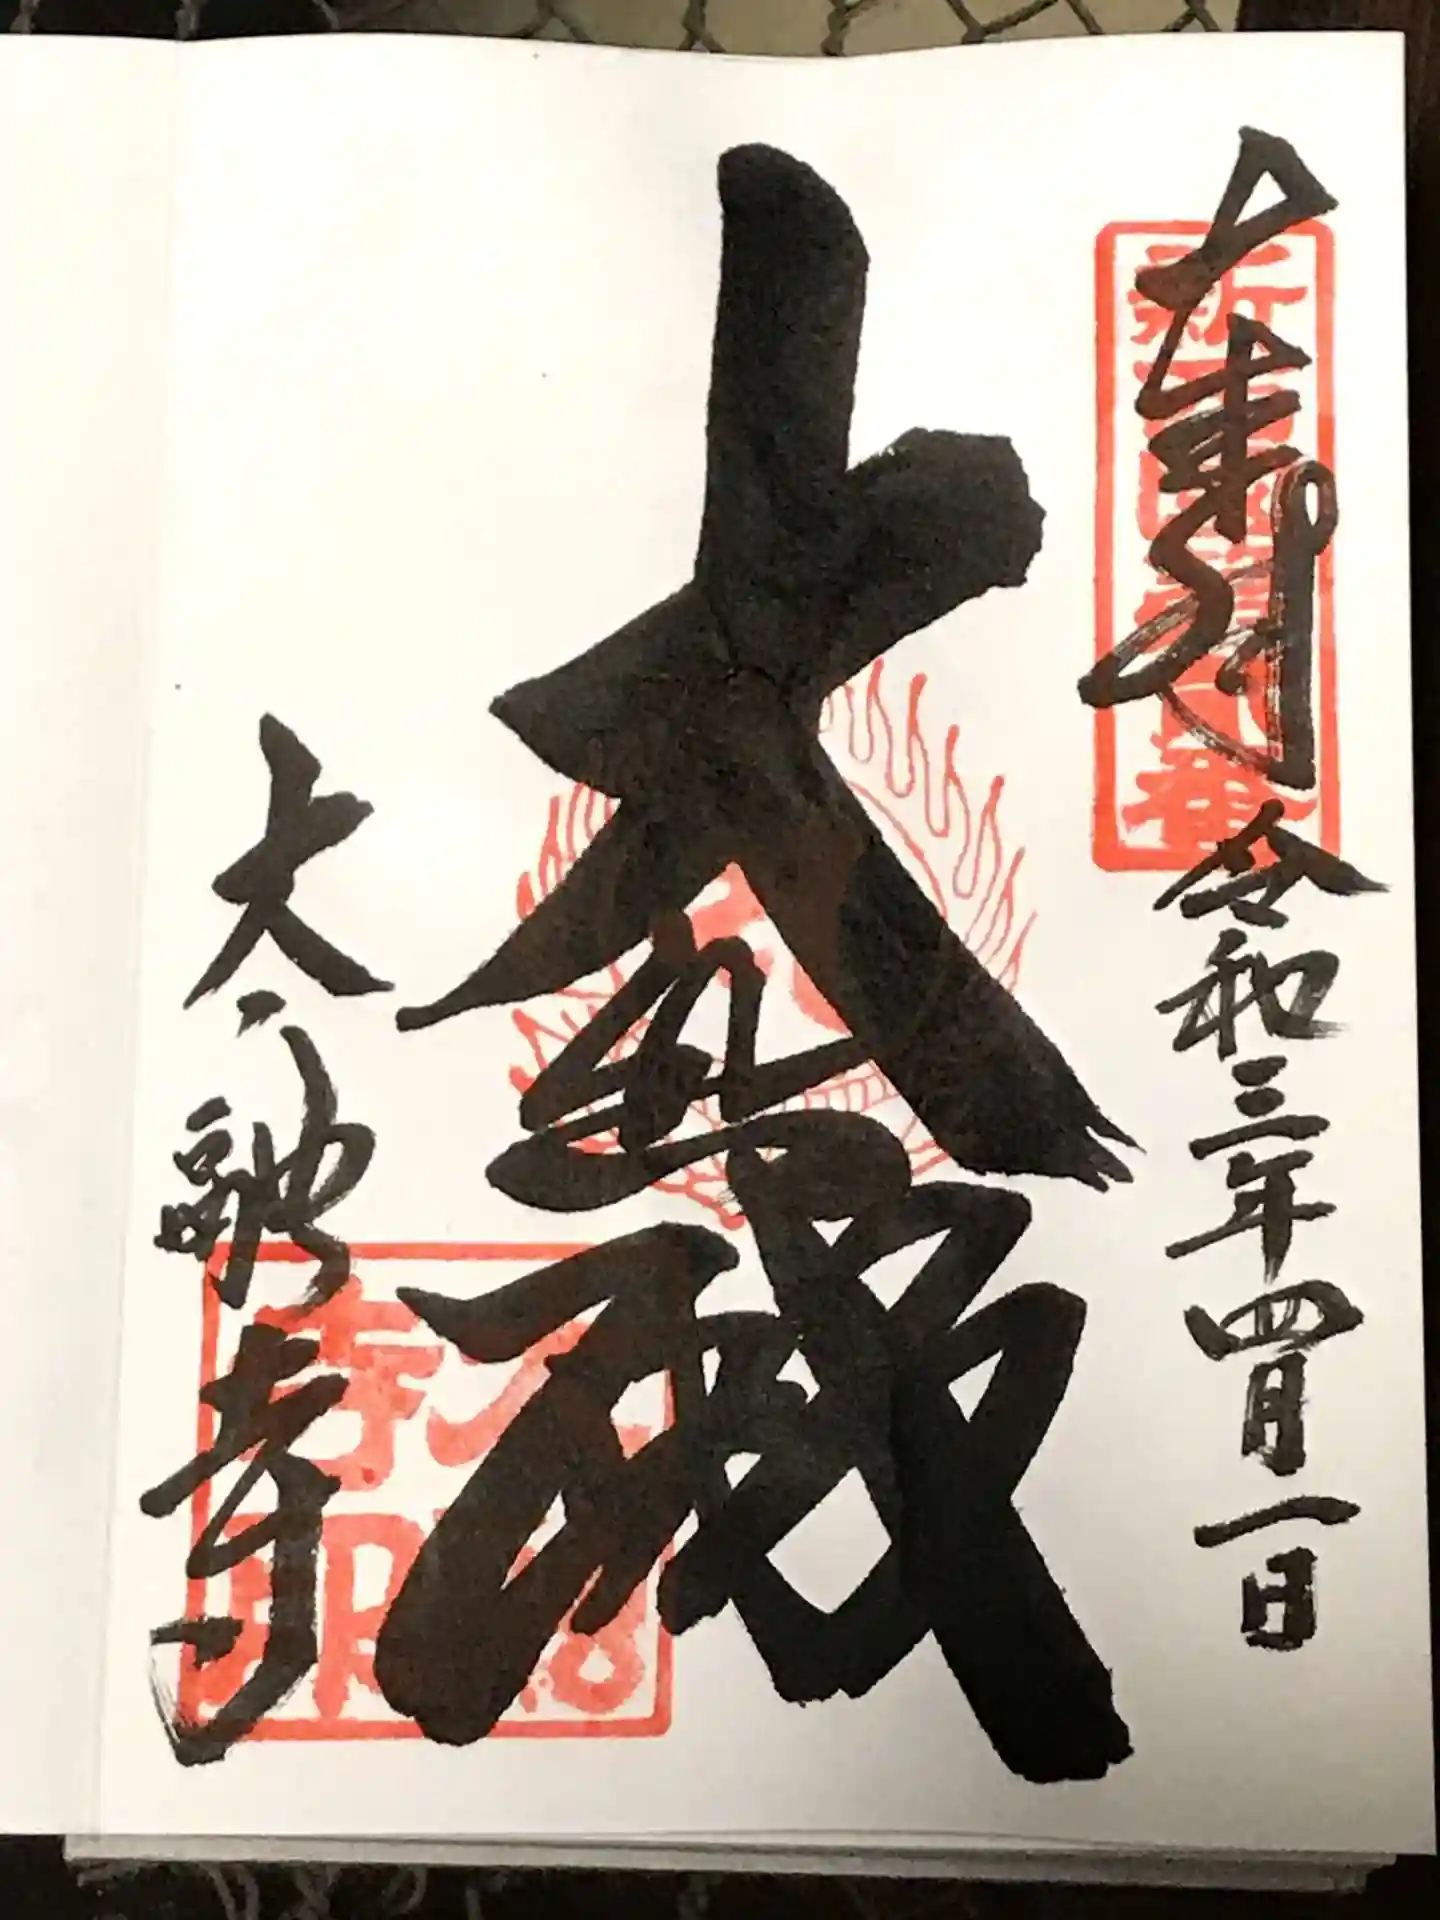 奉拝
令和三年四月一日
大悲殿
太融寺